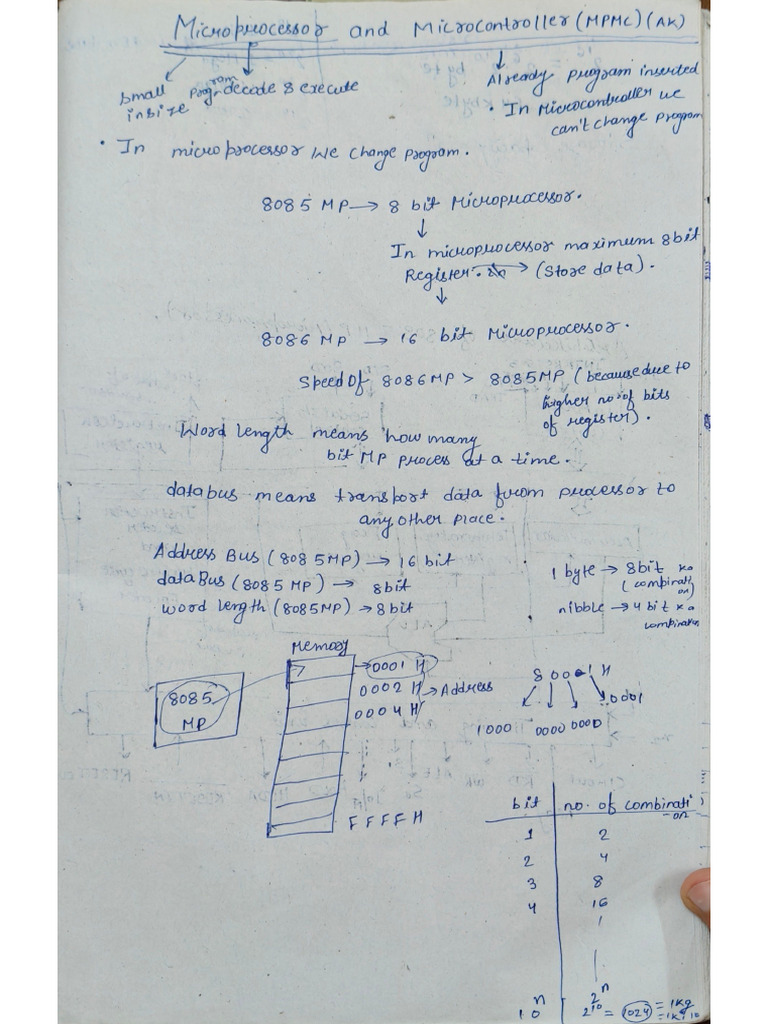 Microprocessor and Microcontroller (MPMC) (AK)
Small insize
Program decode & execute
Already program inserted
• In Microcontroller we can't change program
• In microprocessor we change program.
8085 MP → 8 bit Microprocessor.
↓
In microprocessor maximum 8bit
Register. → (Store data).
↓
8086 MP → 16 bit Microprocessor.
Speed of 8086MP > 8085MP (because due to
higher no of bits
of register).
Word length means how many
bit MP process at a time.
data bus means transport data from processor to
any other place.
Address Bus (8085MP) → 16 bit
data Bus (8085 MP) → 8bit
word length (8085MP) → 8bit
1 byte → 8bit ka
(combination)
nibble → 4 bit ka
combination
Memory
8085
MP
→ 0001 H
0002 H → Address
0004 H
FFFF H
8001H
1000 0000 0000 0001
bit no. of combination
1 2
2 4
3 8
4 16
n 2^n
10 2^10 = 1024 = 1kg